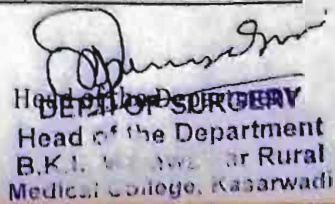 Head of the Department
DEPT. OF SURGERY
Head of the Department
B.K.L. Rural
Medical College, Kasarwadi